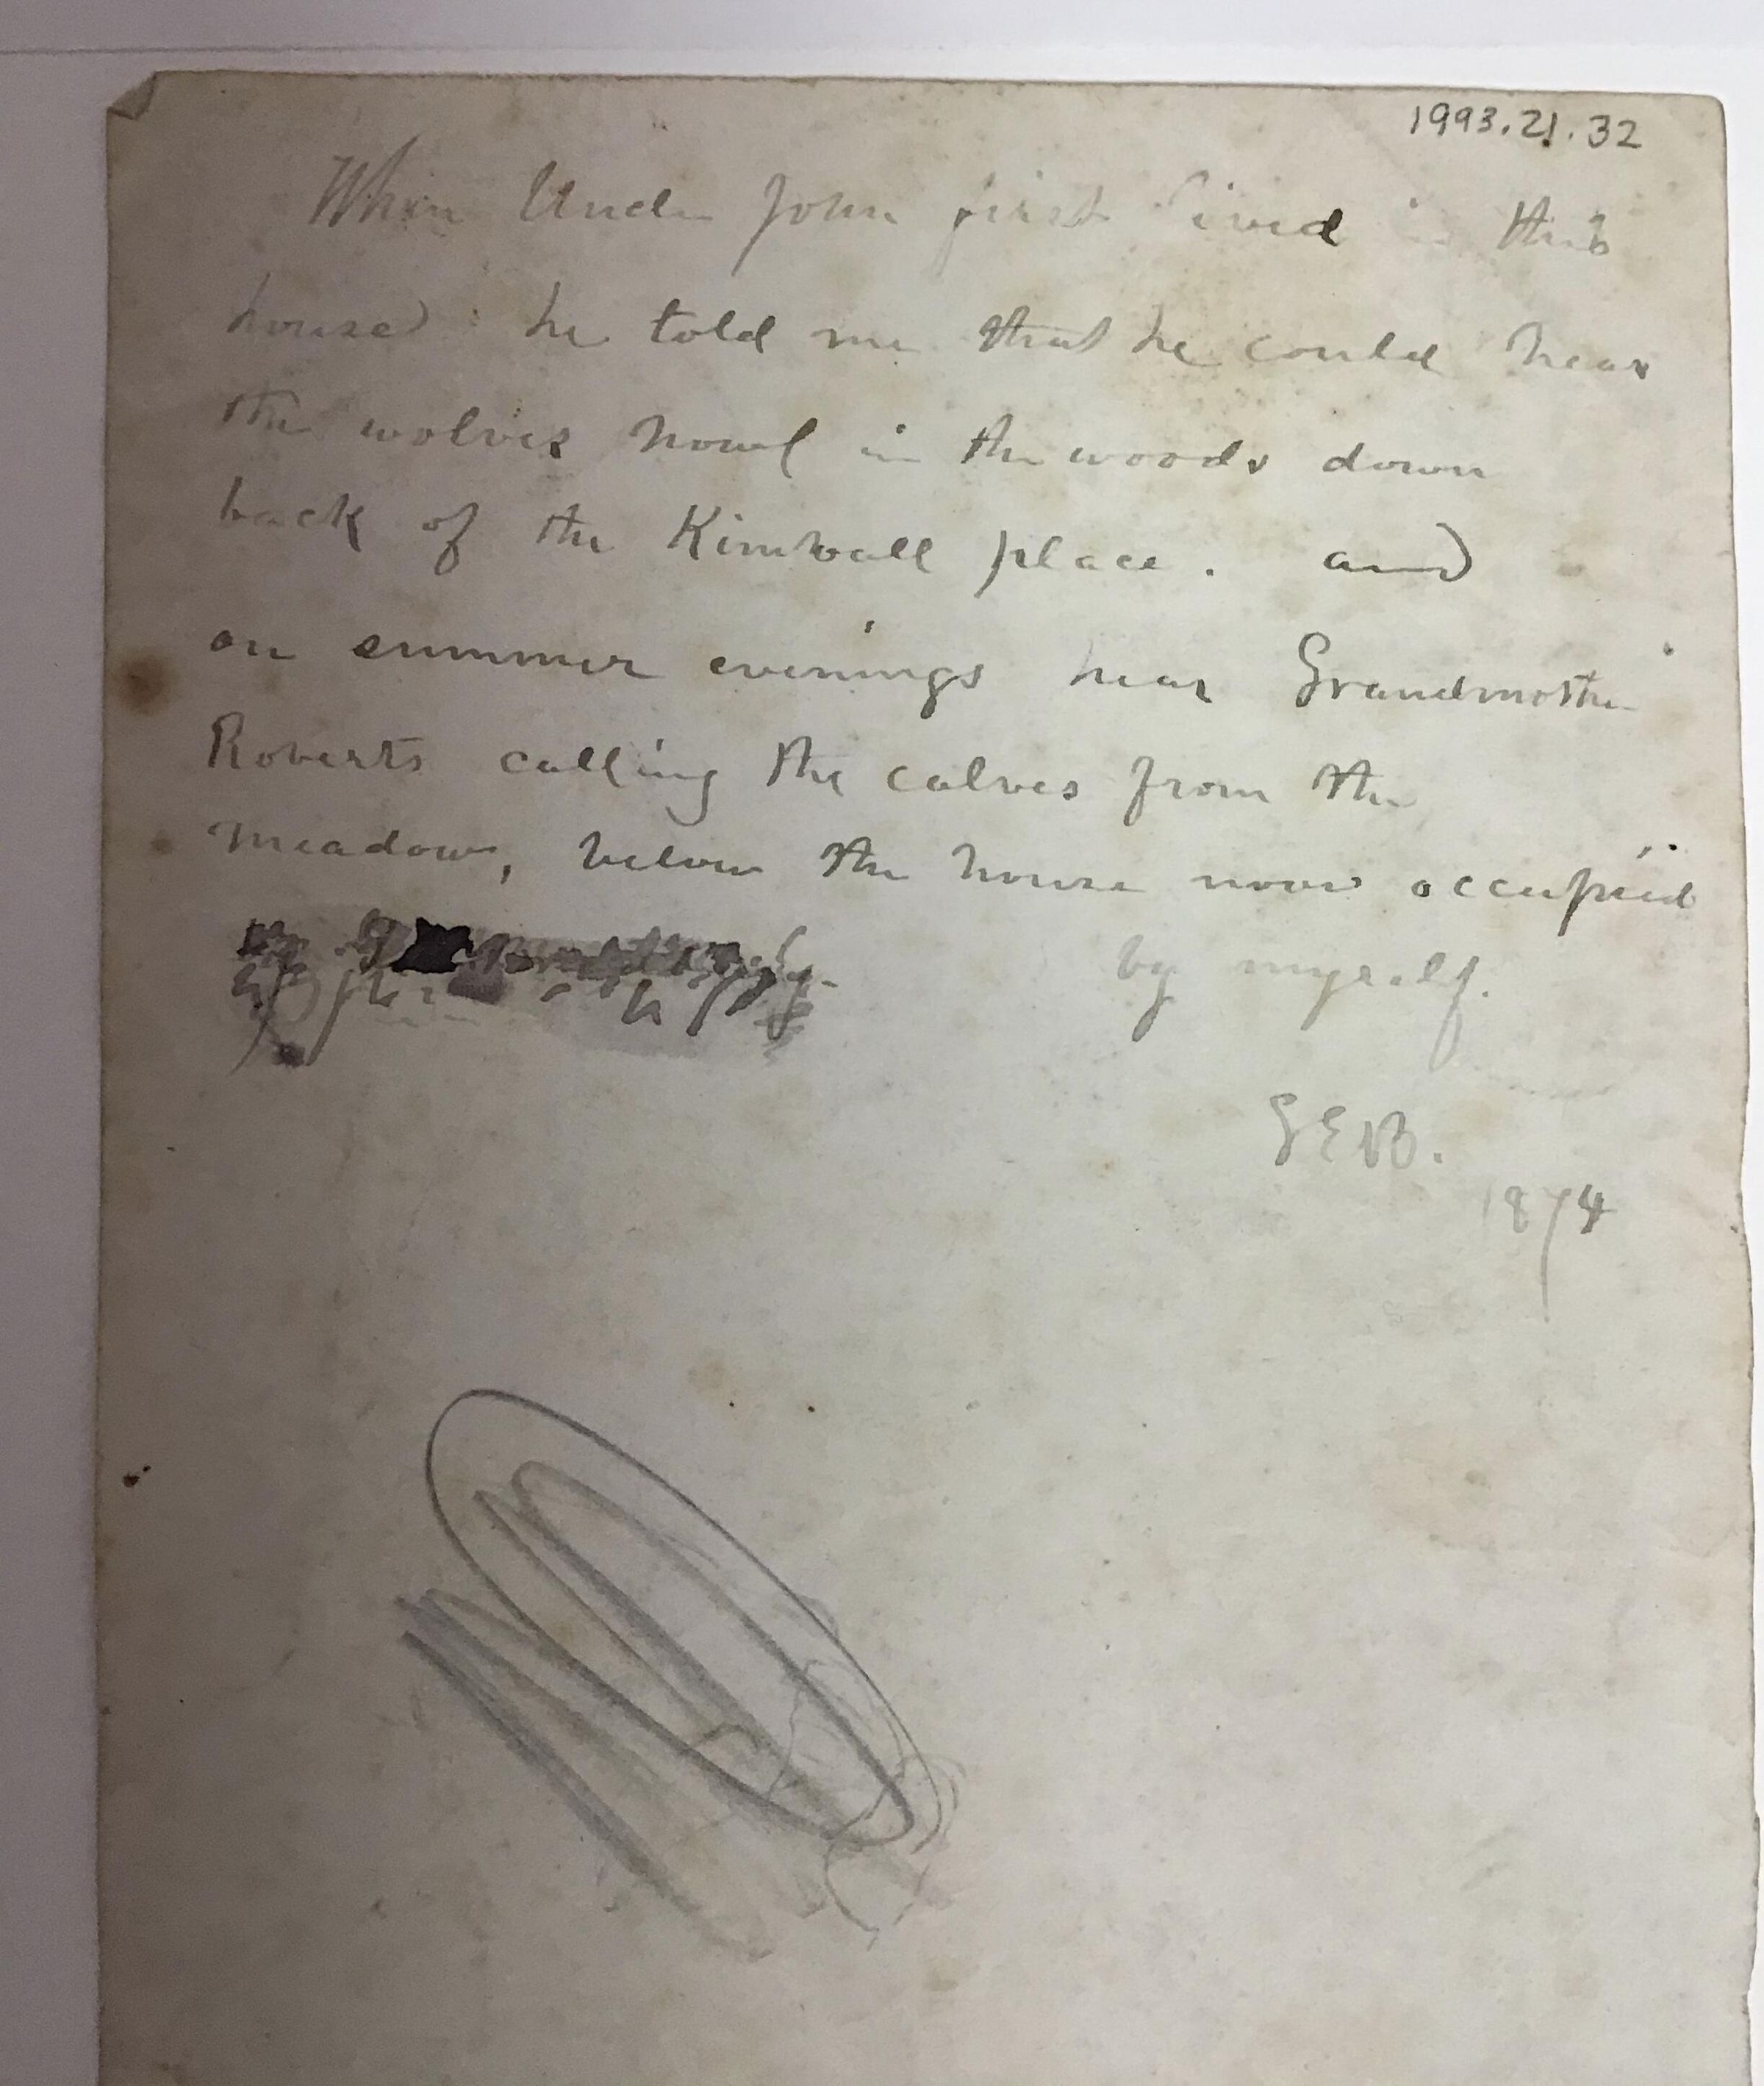 1993.21.32
When Uncle John first lived in this
house he told me that he could hear
the wolves howl in the woods down
back of the Kimball place. and
on summer evenings hear Grandmother
Roberts calling the calves from the
meadow, below the house now occupied
by myself.
GEB.
1874